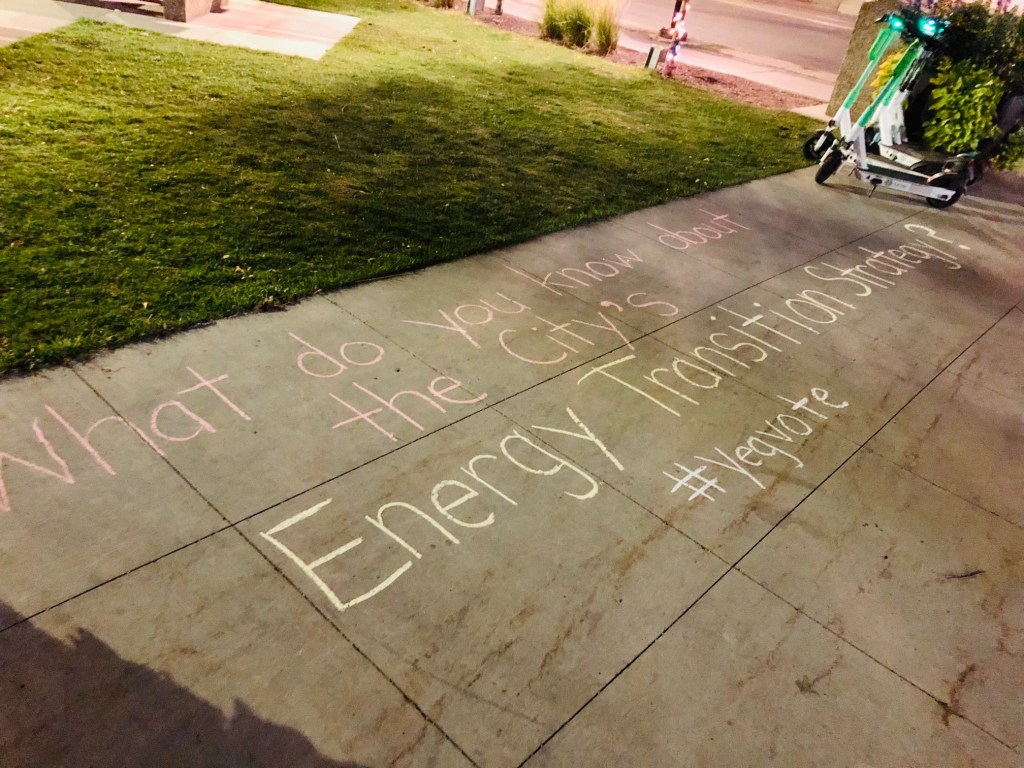 What do you know about
the City's
Energy Transition Strategy?
#yegvote